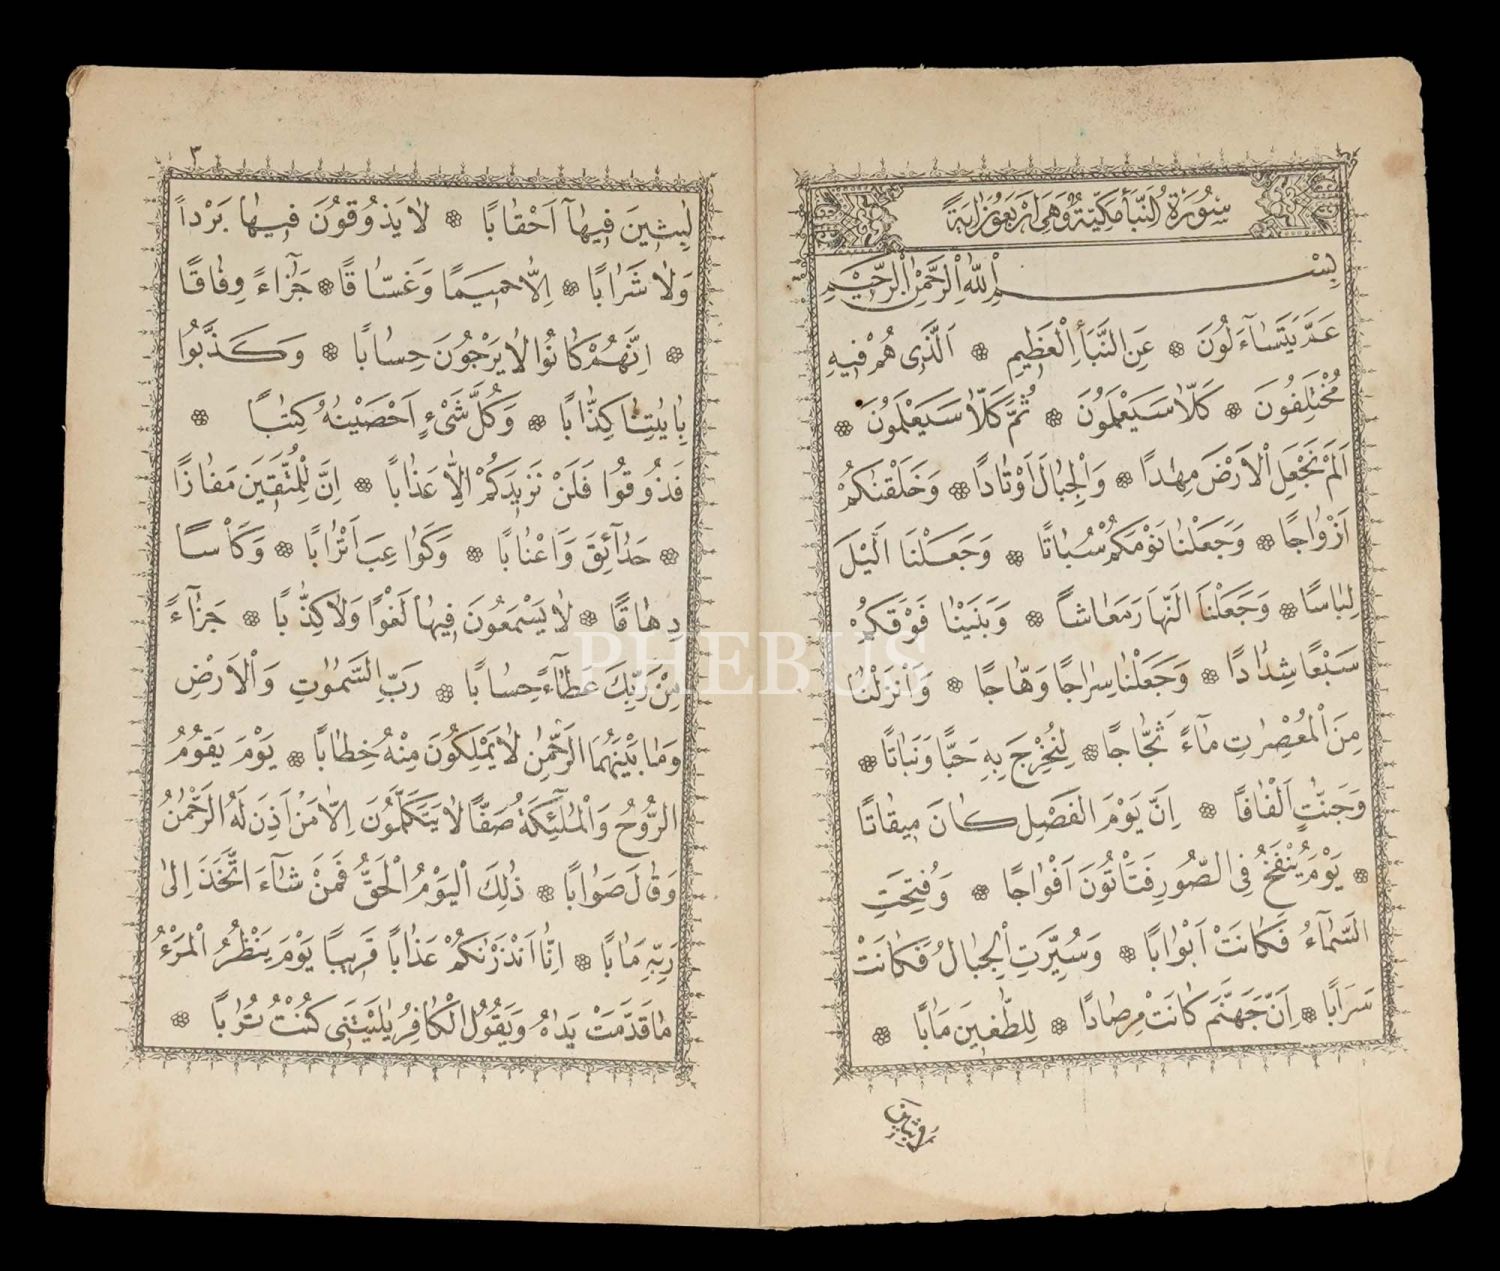 سُورَةُ النَّبَأ مَكِّيَّةٌ وَهِىَ اَرْبَعُونَ اٰيَةً
بِسْمِ اللّٰهِ الرَّحْمٰنِ الرَّحٖيمِ
عَمَّ يَتَسَٓاءَلُونَ ۞ عَنِ النَّبَأِ الْعَظٖيمِ ۞ اَلَّذٖى هُمْ فٖيهِ
مُخْتَلِفُونَ ۞ كَلَّا سَيَعْلَمُونَ ۞ ثُمَّ كَلَّا سَيَعْلَمُونَ ۞
اَلَمْ نَجْعَلِ الْاَرْضَ مِهَادًا ۞ وَالْجِبَالَ اَوْتَادًا ۞ وَخَلَقْنَاكُمْ
اَزْوَاجًا ۞ وَجَعَلْنَا نَوْمَكُمْ سُبَاتًا ۞ وَجَعَلْنَا الَّيْلَ
لِبَاسًا ۞ وَجَعَلْنَا النَّهَارَ مَعَاشًا ۞ وَبَنَيْنَا فَوْقَكُمْ
سَبْعًا شِدَادًا ۞ وَجَعَلْنَا سِرَاجًا وَهَّاجًا ۞ وَاَنْزَلْنَا
مِنَ الْمُعْصِرَاتِ مَٓاءً ثَجَّاجًا ۞ لِنُخْرِجَ بِهِ حَبًّا وَنَبَاتًا ۞
وَجَنَّاتٍ اَلْفَافًا ۞ اِنَّ يَوْمَ الْفَصْلِ كَانَ مٖيقَاتًا
۞ يَوْمَ يُنْفَخُ فِى الصُّورِ فَتَاْتُونَ اَفْوَاجًا ۞ وَفُتِحَتِ
السَّمَٓاءُ فَكَانَتْ اَبْوَابًا ۞ وَسُيِّرَتِ الْجِبَالُ فَكَانَتْ
سَرَابًا ۞ اِنَّ جَهَنَّمَ كَانَتْ مِرْصَادًا ۞ لِلطَّاغٖينَ مَاٰبًا ۞
٣
لٰبِثٖينَ فٖيهَٓا اَحْقَابًا ۞ لَا يَذُوقُونَ فٖيهَا بَرْدًا
وَلَا شَرَابًا ۞ اِلَّا حَمٖيمًا وَغَسَّاقًا ۞ جَزَٓاءً وِفَاقًا
۞ اِنَّهُمْ كَانُوا لَا يَرْجُونَ حِسَابًا ۞ وَكَذَّبُوا
بِاٰيَاتِنَا كِذَّابًا ۞ وَكُلَّ شَىْءٍ اَحْصَيْنَاهُ كِتَابًا ۞
فَذُوقُوا فَلَنْ نَزٖيدَكُمْ اِلَّا عَذَابًا ۞ اِنَّ لِلْمُتَّقٖينَ مَفَازًا
۞ حَدَٓائِقَ وَاَعْنَابًا ۞ وَكَوَاعِبَ اَتْرَابًا ۞ وَكَاْسًا
دِهَاقًا ۞ لَا يَسْمَعُونَ فٖيهَا لَغْوًا وَلَا كِذَّابًا ۞ جَزَٓاءً
مِنْ رَبِّكَ عَطَٓاءً حِسَابًا ۞ رَبِّ السَّمٰوَاتِ وَالْاَرْضِ
وَمَا بَيْنَهُمَا الرَّحْمٰنِ لَا يَمْلِكُونَ مِنْهُ خِطَابًا ۞ يَوْمَ يَقُومُ
الرُّوحُ وَالْمَلٰٓئِكَةُ صَفًّا لَا يَتَكَلَّمُونَ اِلَّا مَنْ اَذِنَ لَهُ الرَّحْمٰنُ
وَقَالَ صَوَابًا ۞ ذٰلِكَ الْيَوْمُ الْحَقُّ فَمَنْ شَٓاءَ اتَّخَذَ اِلٰى
رَبِّهٖ مَاٰبًا ۞ اِنَّٓا اَنْذَرْنَاكُمْ عَذَابًا قَرٖيبًا يَوْمَ يَنْظُرُ الْمَرْءُ
مَا قَدَّمَتْ يَدَاهُ وَيَقُولُ الْكَافِرُ يَالَيْتَنٖى كُنْتُ تُرَابًا ۞
PHEBUS